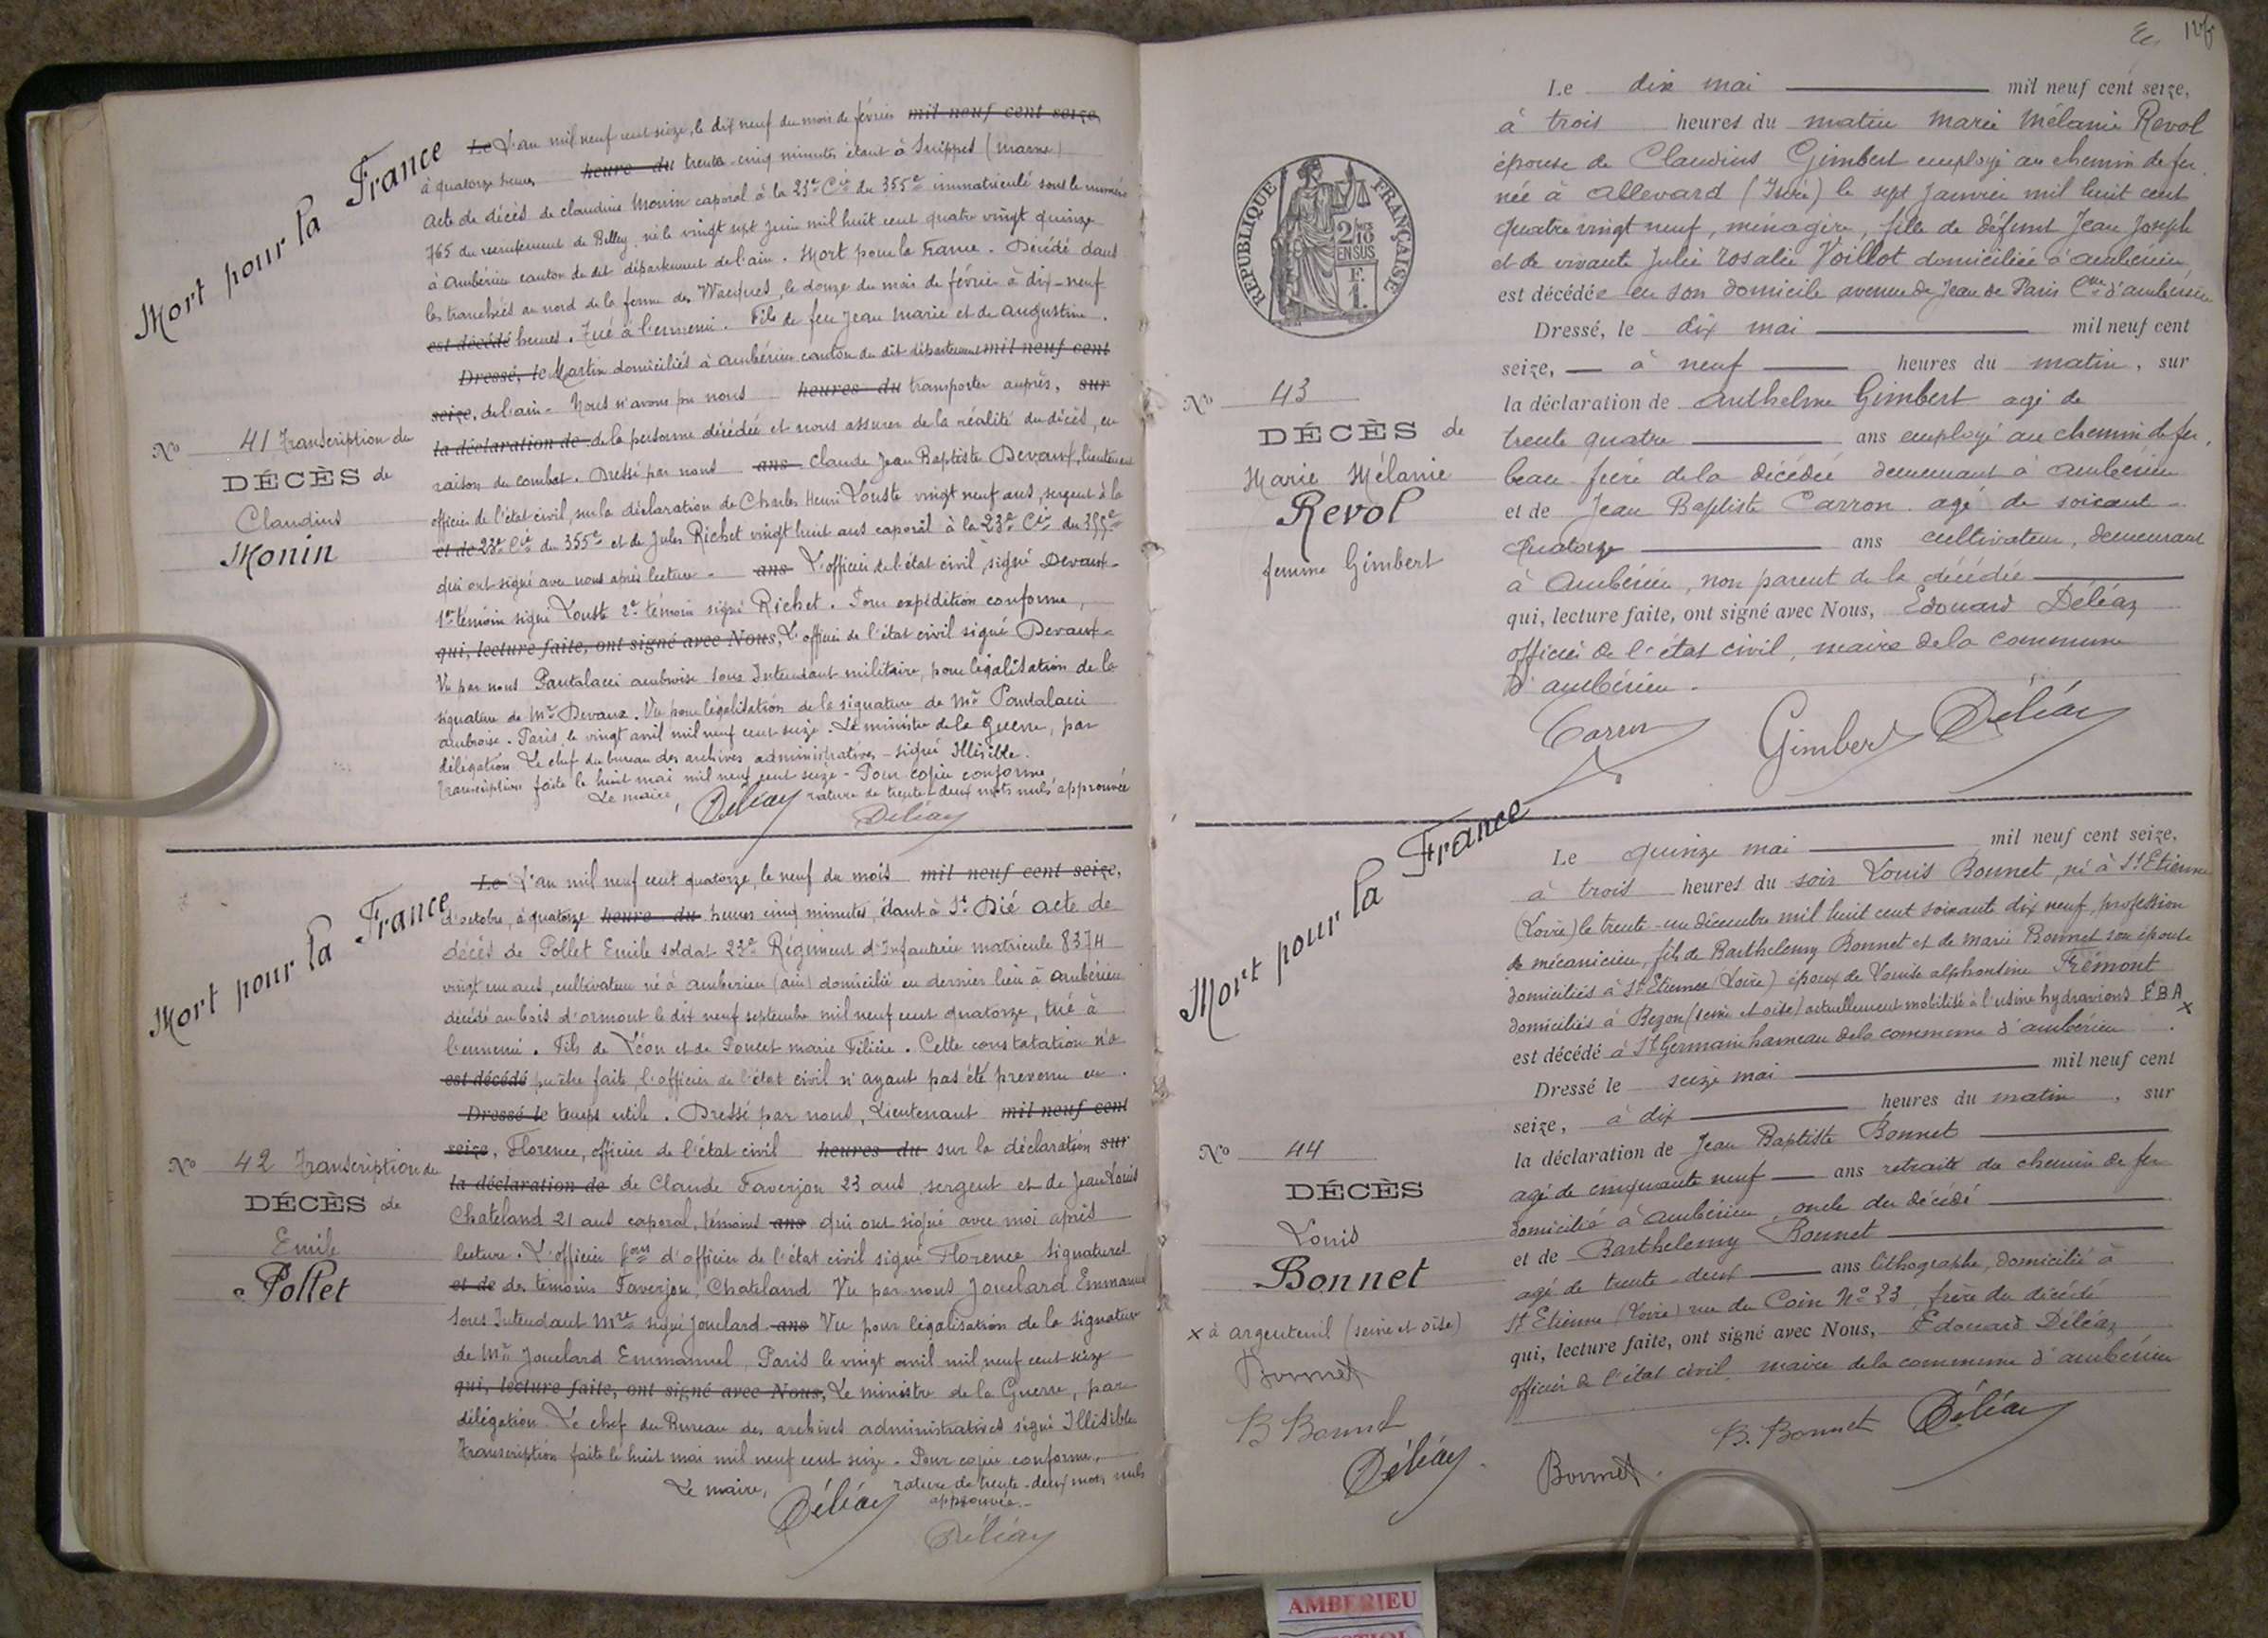 Mort pour la France
Le L'an mil neuf cent seize, le dix neuf du mois de février mil neuf cent seize,
à quatorze heures heure du trente-cinq minutes étant à Suippes (Marne)
acte de décès de Claudius Monin caporal à la 23e Cie du 355e immatriculé sous le numéro
765 du recrutement de Belley, né le vingt sept juin mil huit cent quatre vingt quinze
à Ambérieu canton du dit département de l'ain. Mort pour la France. Décédé dans
les tranchées au nord de la ferme des Wacques, le douze du mois de février à dix-neuf
est décédé heures. Tué à l'ennemi. Fils de feu Jean Marie et de Augustine.
Dressé, le Martin domiciliés à Ambérieu canton du dit département mil neuf cent
seize, de l'ain. Nous n'avons pu nous heures du transporter auprès, sur
la déclaration de de la personne décédée et nous assurer de la réalité du décès, en
raison du combat. Dressé par nous ans Claude Jean Baptiste Devaux, lieutenant
officier de l'état civil, sur la déclaration de Charles Henri Louste vingt neuf ans, sergent à la
et de 23e Cie du 355e et de Jules Richet vingt huit ans caporal à la 23e Cie du 355e
qui ont signé avec nous après lecture. ans L'officier de l'état civil, signé Devaux.
1er témoin signé Louste 2e témoin signé Richet. Pour expédition conforme,
qui, lecture faite, ont signé avec Nous, L'officier de l'état civil signé Devaux.
Vu par nous Pantalacci Ambroise Sous Intendant militaire, pour légalisation de la
signature de Mr Devaux. Vu pour légalisation de la signature de Mr Pantalacci
Ambroise. Paris, le vingt avril mil neuf cent seize. Le ministre de la Guerre, par
délégation Le chef du bureau des archives administratives - signé Illisible.
Transcription faite le huit mai mil neuf cent seize - Pour copie conforme,
Le maire, Déléaz rature de trente-deux mots nuls approuvée
Déléaz
No 41 Transcription du
DÉCÈS de
Claudius
Monin
Mort pour la France
Le L'an mil neuf cent quatorze, le neuf du mois mil neuf cent seize,
d'octobre, à quatorze heure du heures cinq minutes, étant à St Dié acte de
décès de Pollet Emile soldat 23e Régiment d'Infanterie matricule 8374
vingt un ans, cultivateur né à Ambérieu (ain) domicilié en dernier lieu à Ambérieu
décédé au bois d'ormont le dix neuf septembre mil neuf cent quatorze, tué à
l'ennemi. Fils de Léon et de Poncet Marie Félicie. Cette constatation n'a
est décédé pu être faite, l'officier de l'état civil n'ayant pas été prévenu en
Dressé le temps utile. Dressé par nous, Lieutenant mil neuf cent
seize, Florence, officier de l'état civil heures du sur la déclaration sur
la déclaration de de Claude Faverjon 23 ans, sergent et de Jean Louis
Chateland 21 ans caporal, témoins ans qui ont signé avec moi après
lecture. L'officier fons d'officier de l'état civil signé Florence Signatures
et de des témoins Faverjon, Chateland Vu par nous Jouclard Emmanuel
Sous Intendant Mre signé Jouclard ans Vu pour légalisation de la signature
de Mr Jouclard Emmanuel, Paris le vingt avril mil neuf cent seize
qui, lecture faite, ont signé avec Nous, Le ministre de la Guerre, par
délégation Le chef du Bureau des archives administratives signé Illisible
Transcription faite le huit mai mil neuf cent seize. Pour copie conforme,
Le maire, Déléaz rature de trente-deux mots nuls
approuvée.
Déléaz
No 42 Transcription de
DÉCÈS de
Emile
Pollet
Le dix mai mil neuf cent seize,
à trois heures du matin Marie Mélanie Revol
épouse de Claudius Gimbert employé au chemin de fer
née à Allevard (Isère) le sept janvier mil huit cent
quatre vingt neuf, ménagère, fille de défunt Jean Joseph
et de vivante Julie Rosalie Voillot domiciliée à Ambérieu,
est décédée en son domicile avenue de Jean de Paris Cne d'Ambérieu
Dressé, le dix mai mil neuf cent
seize, à neuf heures du matin, sur
la déclaration de Anthelme Gimbert agé de
trente quatre ans employé au chemin de fer,
beau frère de la décédée demeurant à Ambérieu
et de Jean Baptiste Carron agé de soixante
quatorze ans cultivateur, demeurant
à Ambérieu, non parent de la décédée
qui, lecture faite, ont signé avec Nous, Edouard Déléaz
officier de l'état civil, maire de la commune
d'Ambérieu.
Carron Gimbert Déléaz
RÉPUBLIQUE FRANÇAISE
2/10
EN SUS
F.
1.
No 43
DÉCÈS de
Marie Mélanie
Revol
femme Gimbert
Mort pour la France
Le quinze mai mil neuf cent seize,
à trois heures du soir Louis Bonnet, né à St Etienne
(Loire) le trente-un décembre mil huit cent soixante dix neuf, profession
de mécanicien, fils de Barthelemy Bonnet et de Marie Bonnet son épouse
domiciliés à St Etienne (Loire) époux de Louise Alphonsine Frémont
domiciliés à Bezon (seine et oise) actuellement mobilisé à l'usine hydravions F B A x
est décédé à St Germain hameau de la commune d'Ambérieu.
Dressé le seize mai mil neuf cent
seize, à dix heures du matin, sur
la déclaration de Jean Baptiste Bonnet
agé de cinquante neuf ans retraité du chemin de fer
domicilié à Ambérieu, oncle du décédé
et de Barthelemy Bonnet
agé de trente-deux ans lithographe, domicilié à
St Etienne (Loire) rue du Coin No 23, frère du décédé
qui, lecture faite, ont signé avec Nous, Edouard Déléaz
officier de l'état civil, maire de la commune d'Ambérieu
Bonnet. B. Bonnet Déléaz
No 44
DÉCÈS
Louis
Bonnet
x à argenteuil (seine et oise)
Bonnet
B Bonnet
Déléaz.
AMBERIEU